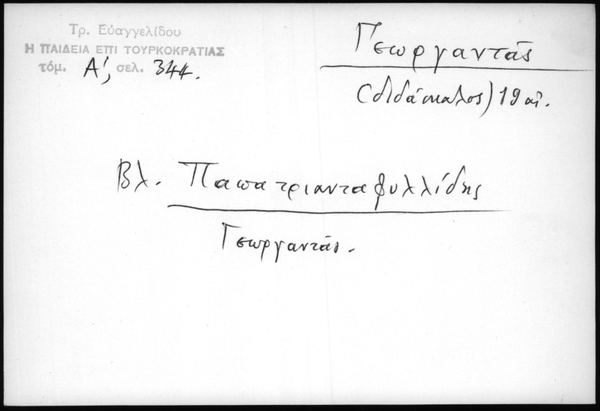 Τρ. Εὐαγγελίδου
Η ΠΑΙΔΕΙΑ ΕΠΙ ΤΟΥΡΚΟΚΡΑΤΙΑΣ
τόμ. Α', σελ. 344.
Γεωργαντᾶς
(διδάσκαλος) 19 αἰ.
Βλ. Παπατριανταφυλλίδης
Γεωργαντᾶς.